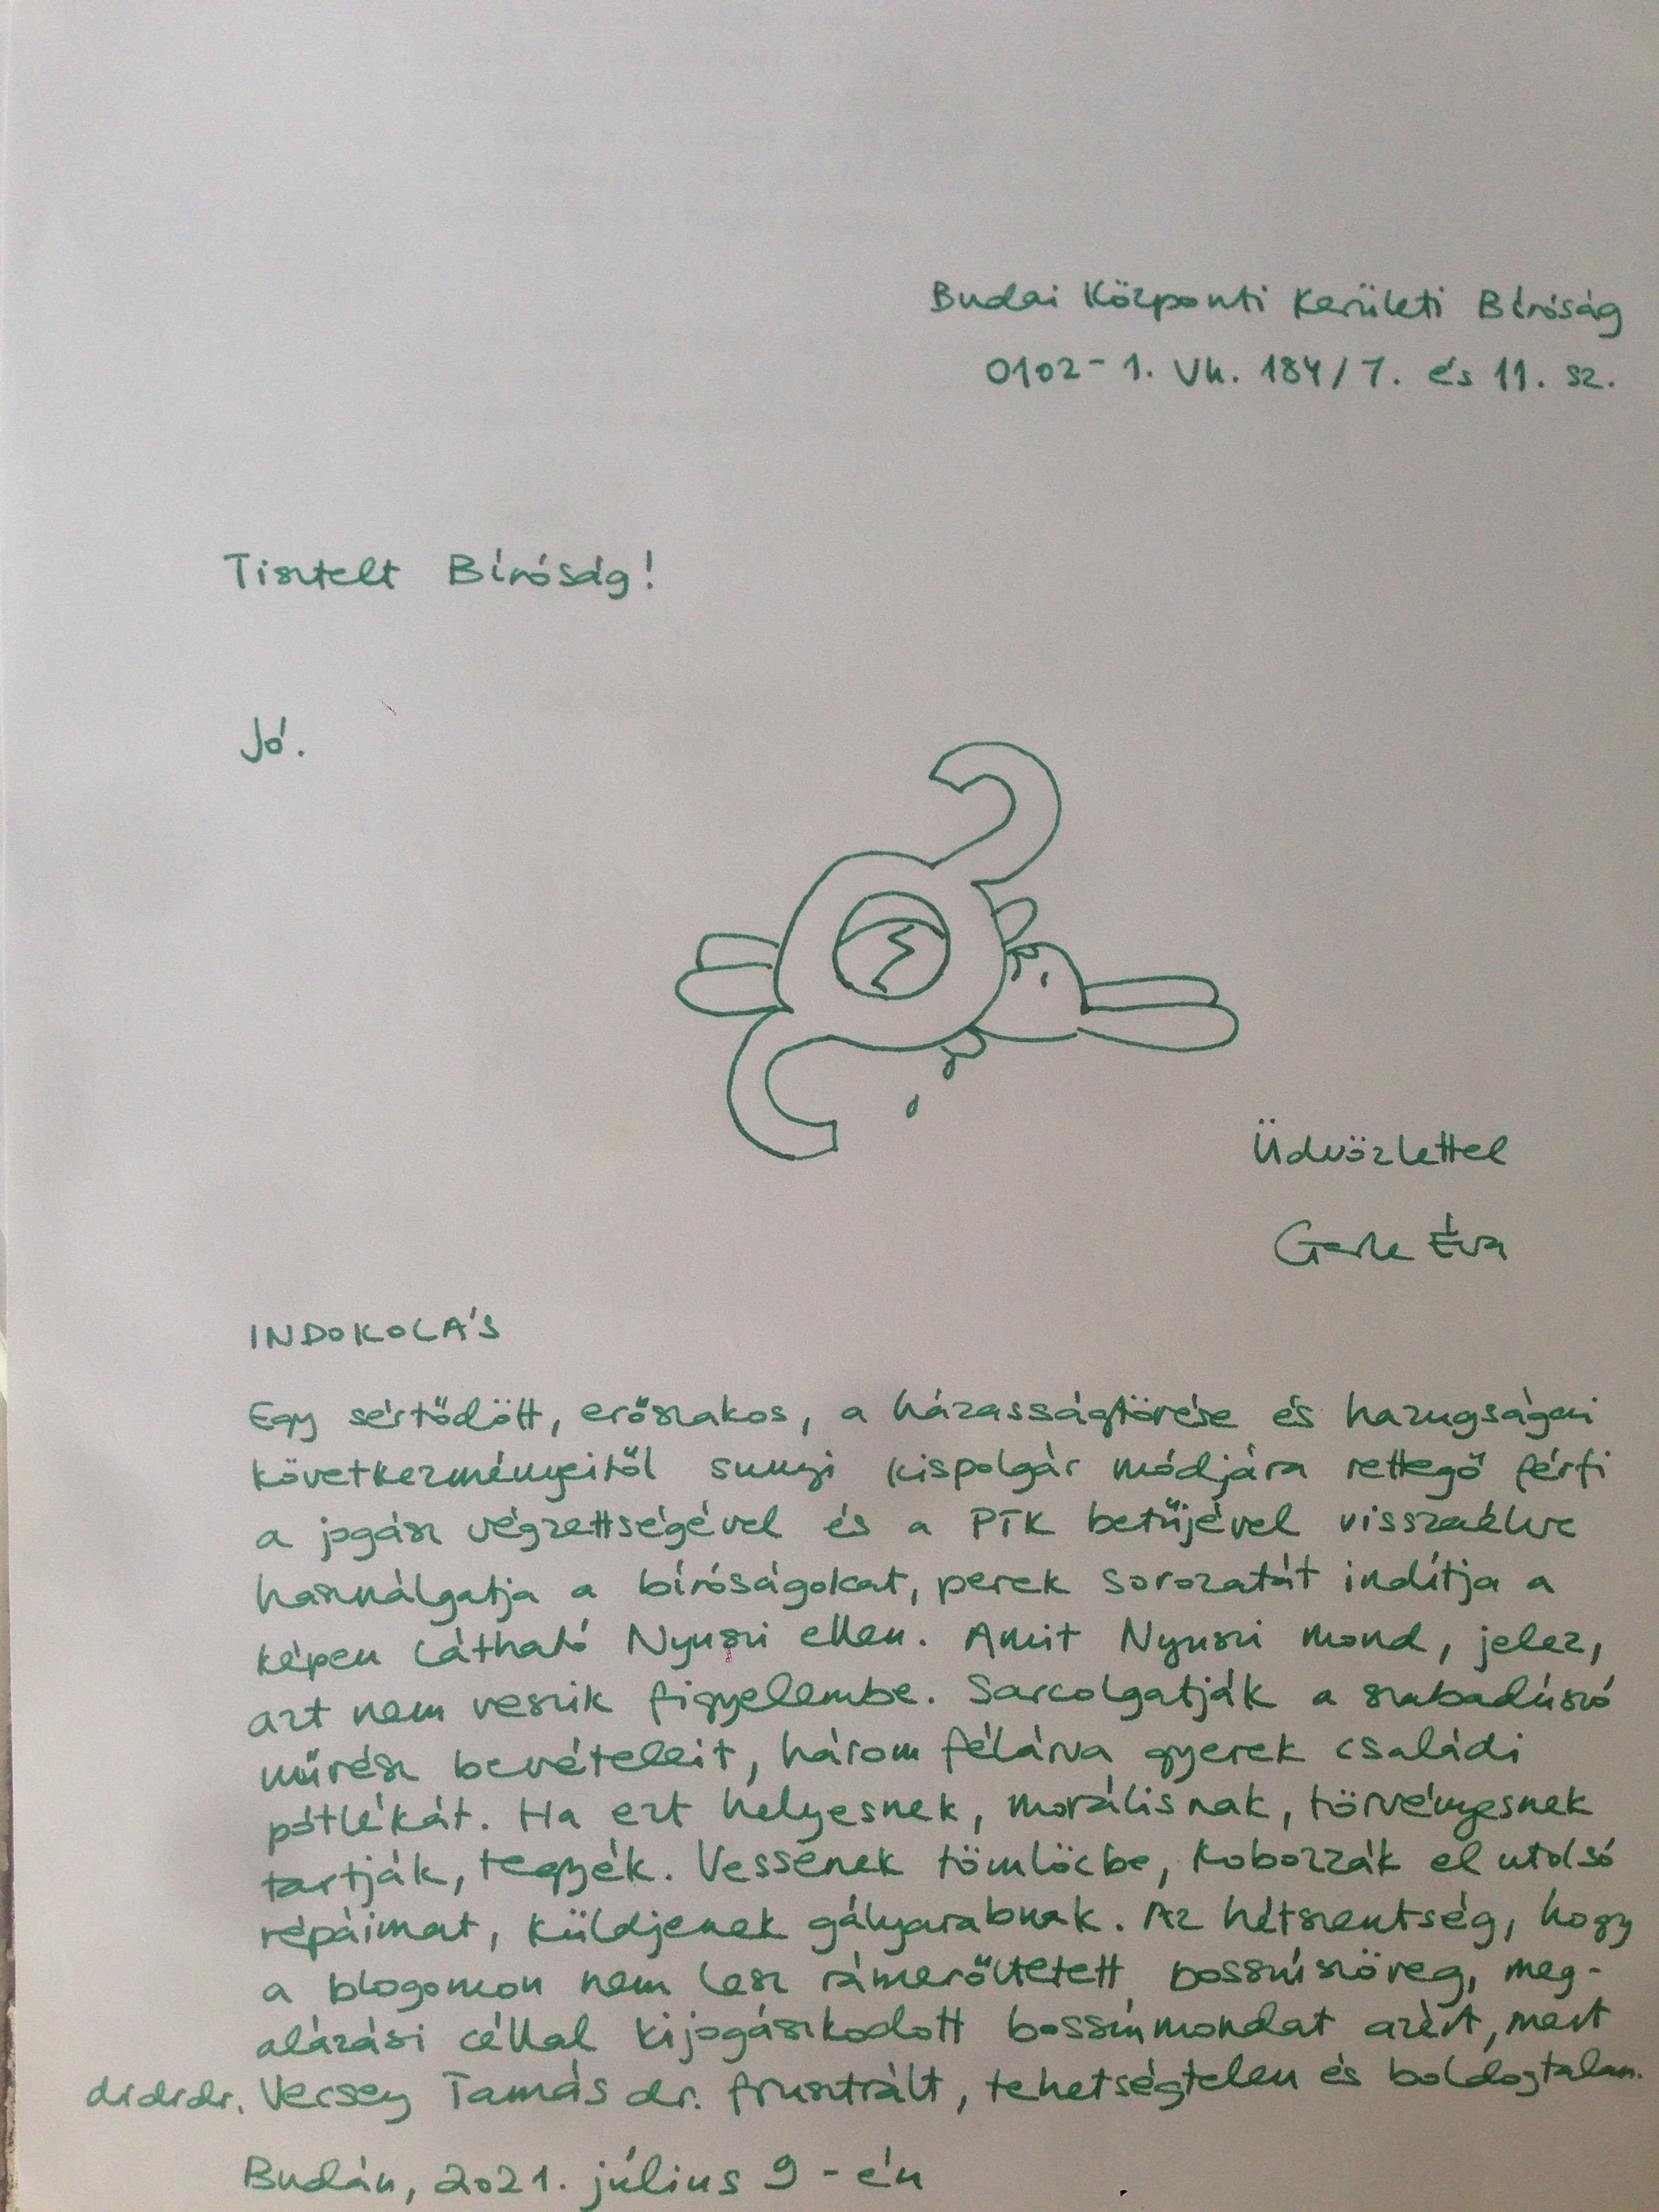 Budai Központi Kerületi Bíróság
0102-1. Vh. 184/7. és 11. sz.
Tisztelt Bíróság!
Jó.
Üdvözlettel
Éva
INDOKOLÁS
Egy sértődött, erőszakos, a házasságtörése és hazugságai
következményeitől sunyi kispolgár módjára rettegő férfi
a jogász végzettségével és a PTK betűjével visszaélve
használgatja a bíróságokat, perek sorozatát indítja a
képen látható Nyuszi ellen. Amit Nyuszi mond, jelez,
azt nem veszik figyelembe. Sarcolgatják a szabadúszó
művész bevételeit, három félárva gyerek családi
pótlékát. Ha ezt helyesnek, morálisnak, törvényesnek
tartják, tegyék. Vessenek tömlöcbe, kobozzák el utolsó
répáimat, küldjenek gályarabnak. Az hétszentség, hogy
a blogomon nem lesz rámerőltetett bosszúszöveg, meg-
alázási céllal kijogászkodott bosszúmondat azért, mert
drdrdr. Vecsey Tamás dr. frusztrált, tehetségtelen és boldogtalan.
Budán, 2021. július 9-én